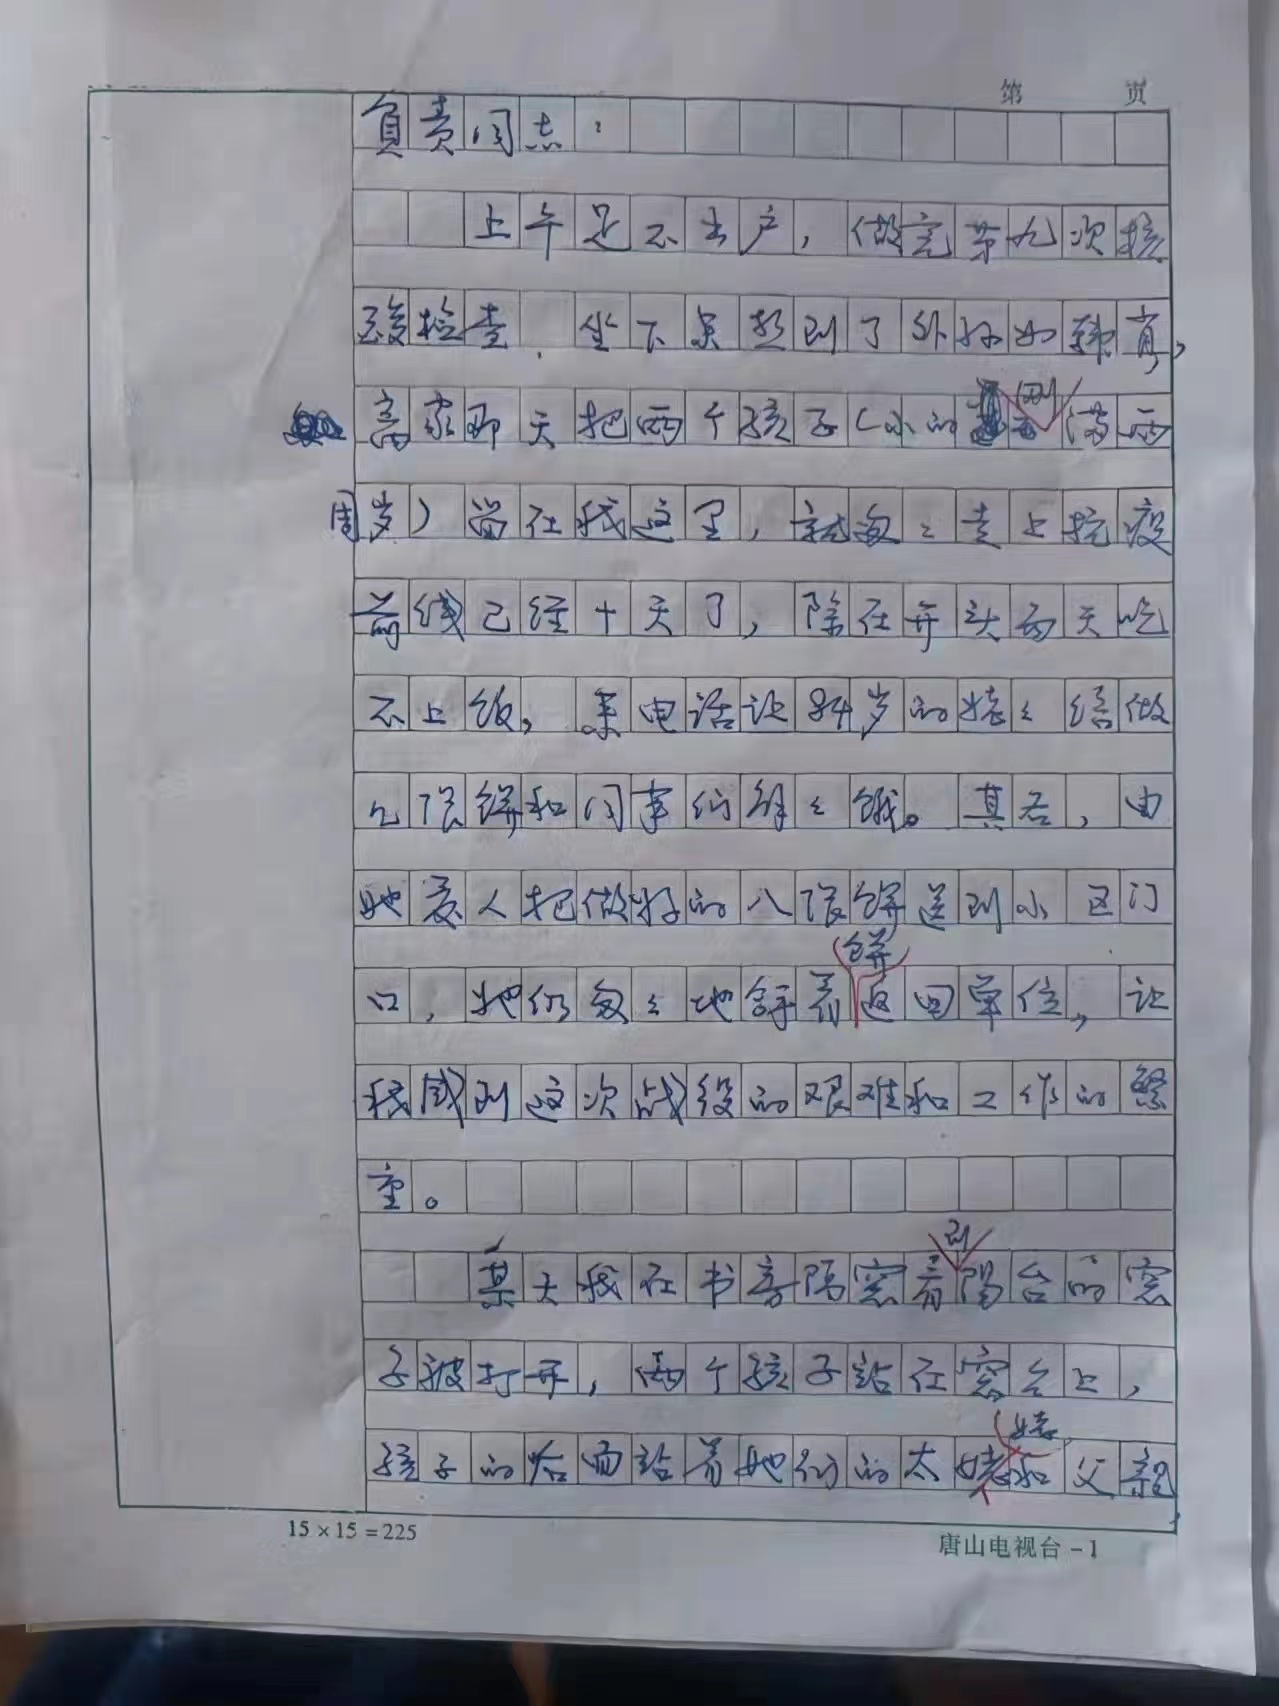 第 页
负责同志：
上午足不出户，做完第九次核
酸检查，坐下来想到了外孙女韩育，
离家那天把两个孩子（小的刚满两
周岁）留在我这里，就匆匆走上抗疫
前线已经十天了，除在开头两天吃
不上饭，来电话让84岁的姥姥给做
几张饼和同事们解解饿。其后，由
她爱人把做好的八张饼送到小区门
口，她仍匆匆地拿着饼返回单位，让
我感到这次战役的艰难和工作的繁
重。
某天我在书房隔窗看到阳台的窗
子被打开，两个孩子站在窗台上，
孩子的后面站着她们的太姥姥和父亲
15×15=225
唐山电视台-1